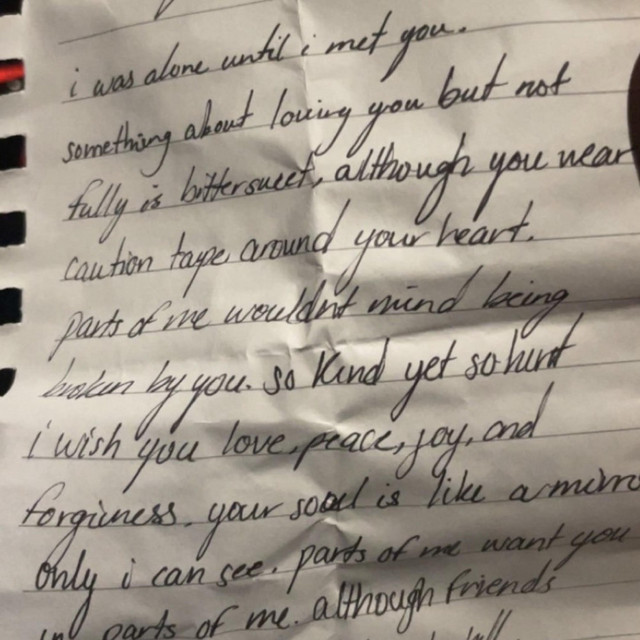 i was alone until i met you.
something about loving you but not
fully is bittersweet, although you wear
caution tape around your heart.
parts of me wouldnt mind being
broken by you. so kind yet so hurt
i wish you love, peace, joy, and
forgivness. your soul is like a mirro
only i can see. parts of me want you
in parts of me. although friends